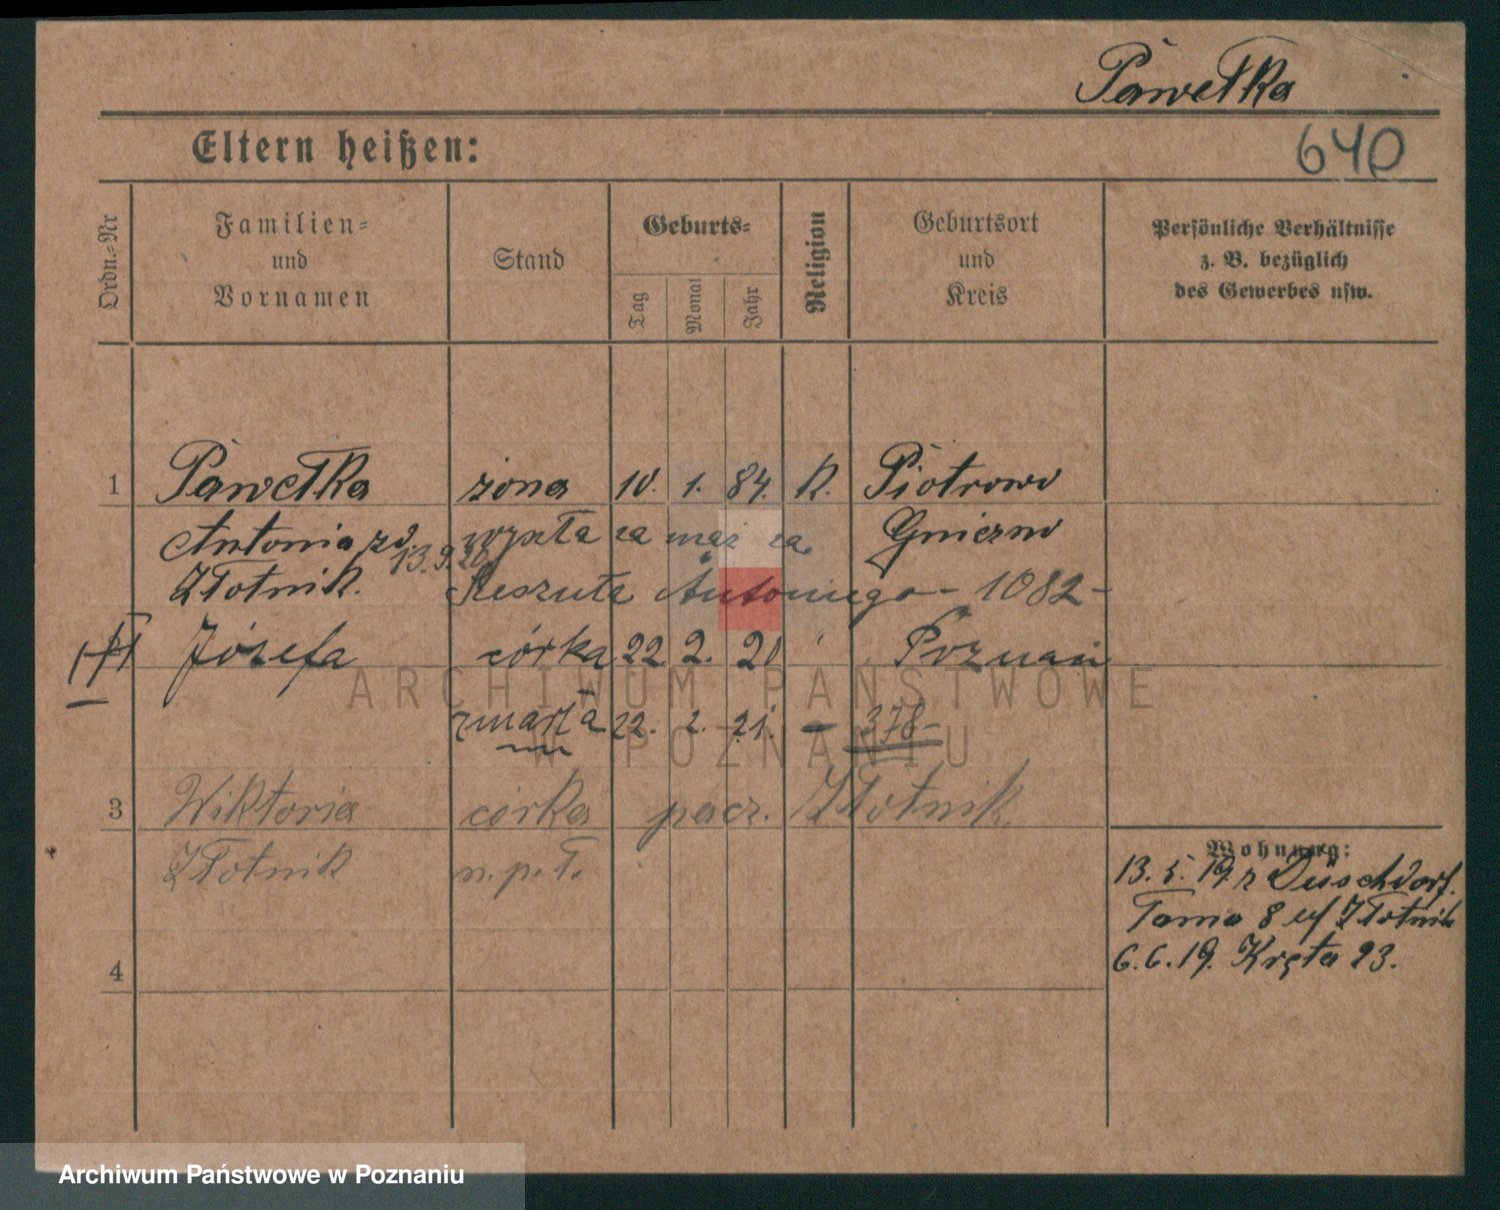 Pawełka
Eltern heißen:
640
Ordn.=Nr
Familien=
und
Vornamen
Stand
Geburts=
Tag
Monat
Jahr
Religion
Geburtsort
und
Kreis
Persönliche Verhältnisse
z. B. bezüglich
des Gewerbes usw.
1 Pawełka żona 10. 1. 84. K. Piotrowo
Antonia zd. wyszła za mąż za Gniezno
13.9.20
Złotnik. Reszuta Antoniego - 1082 -
Józefa córka 22 2. 20 Poznań
ARCHIWUM PAŃSTWOWE
W POZNANIU
zmarła 22. 2. 21. - 378 -
3 Wiktoria córka patrz. Złotnik.
Złotnik n.p.ł.
4
Wohnung:
13.5.19 z
Tama 8 Złotnik
6.6.19. Kręta 23.
Archiwum Państwowe w Poznaniu